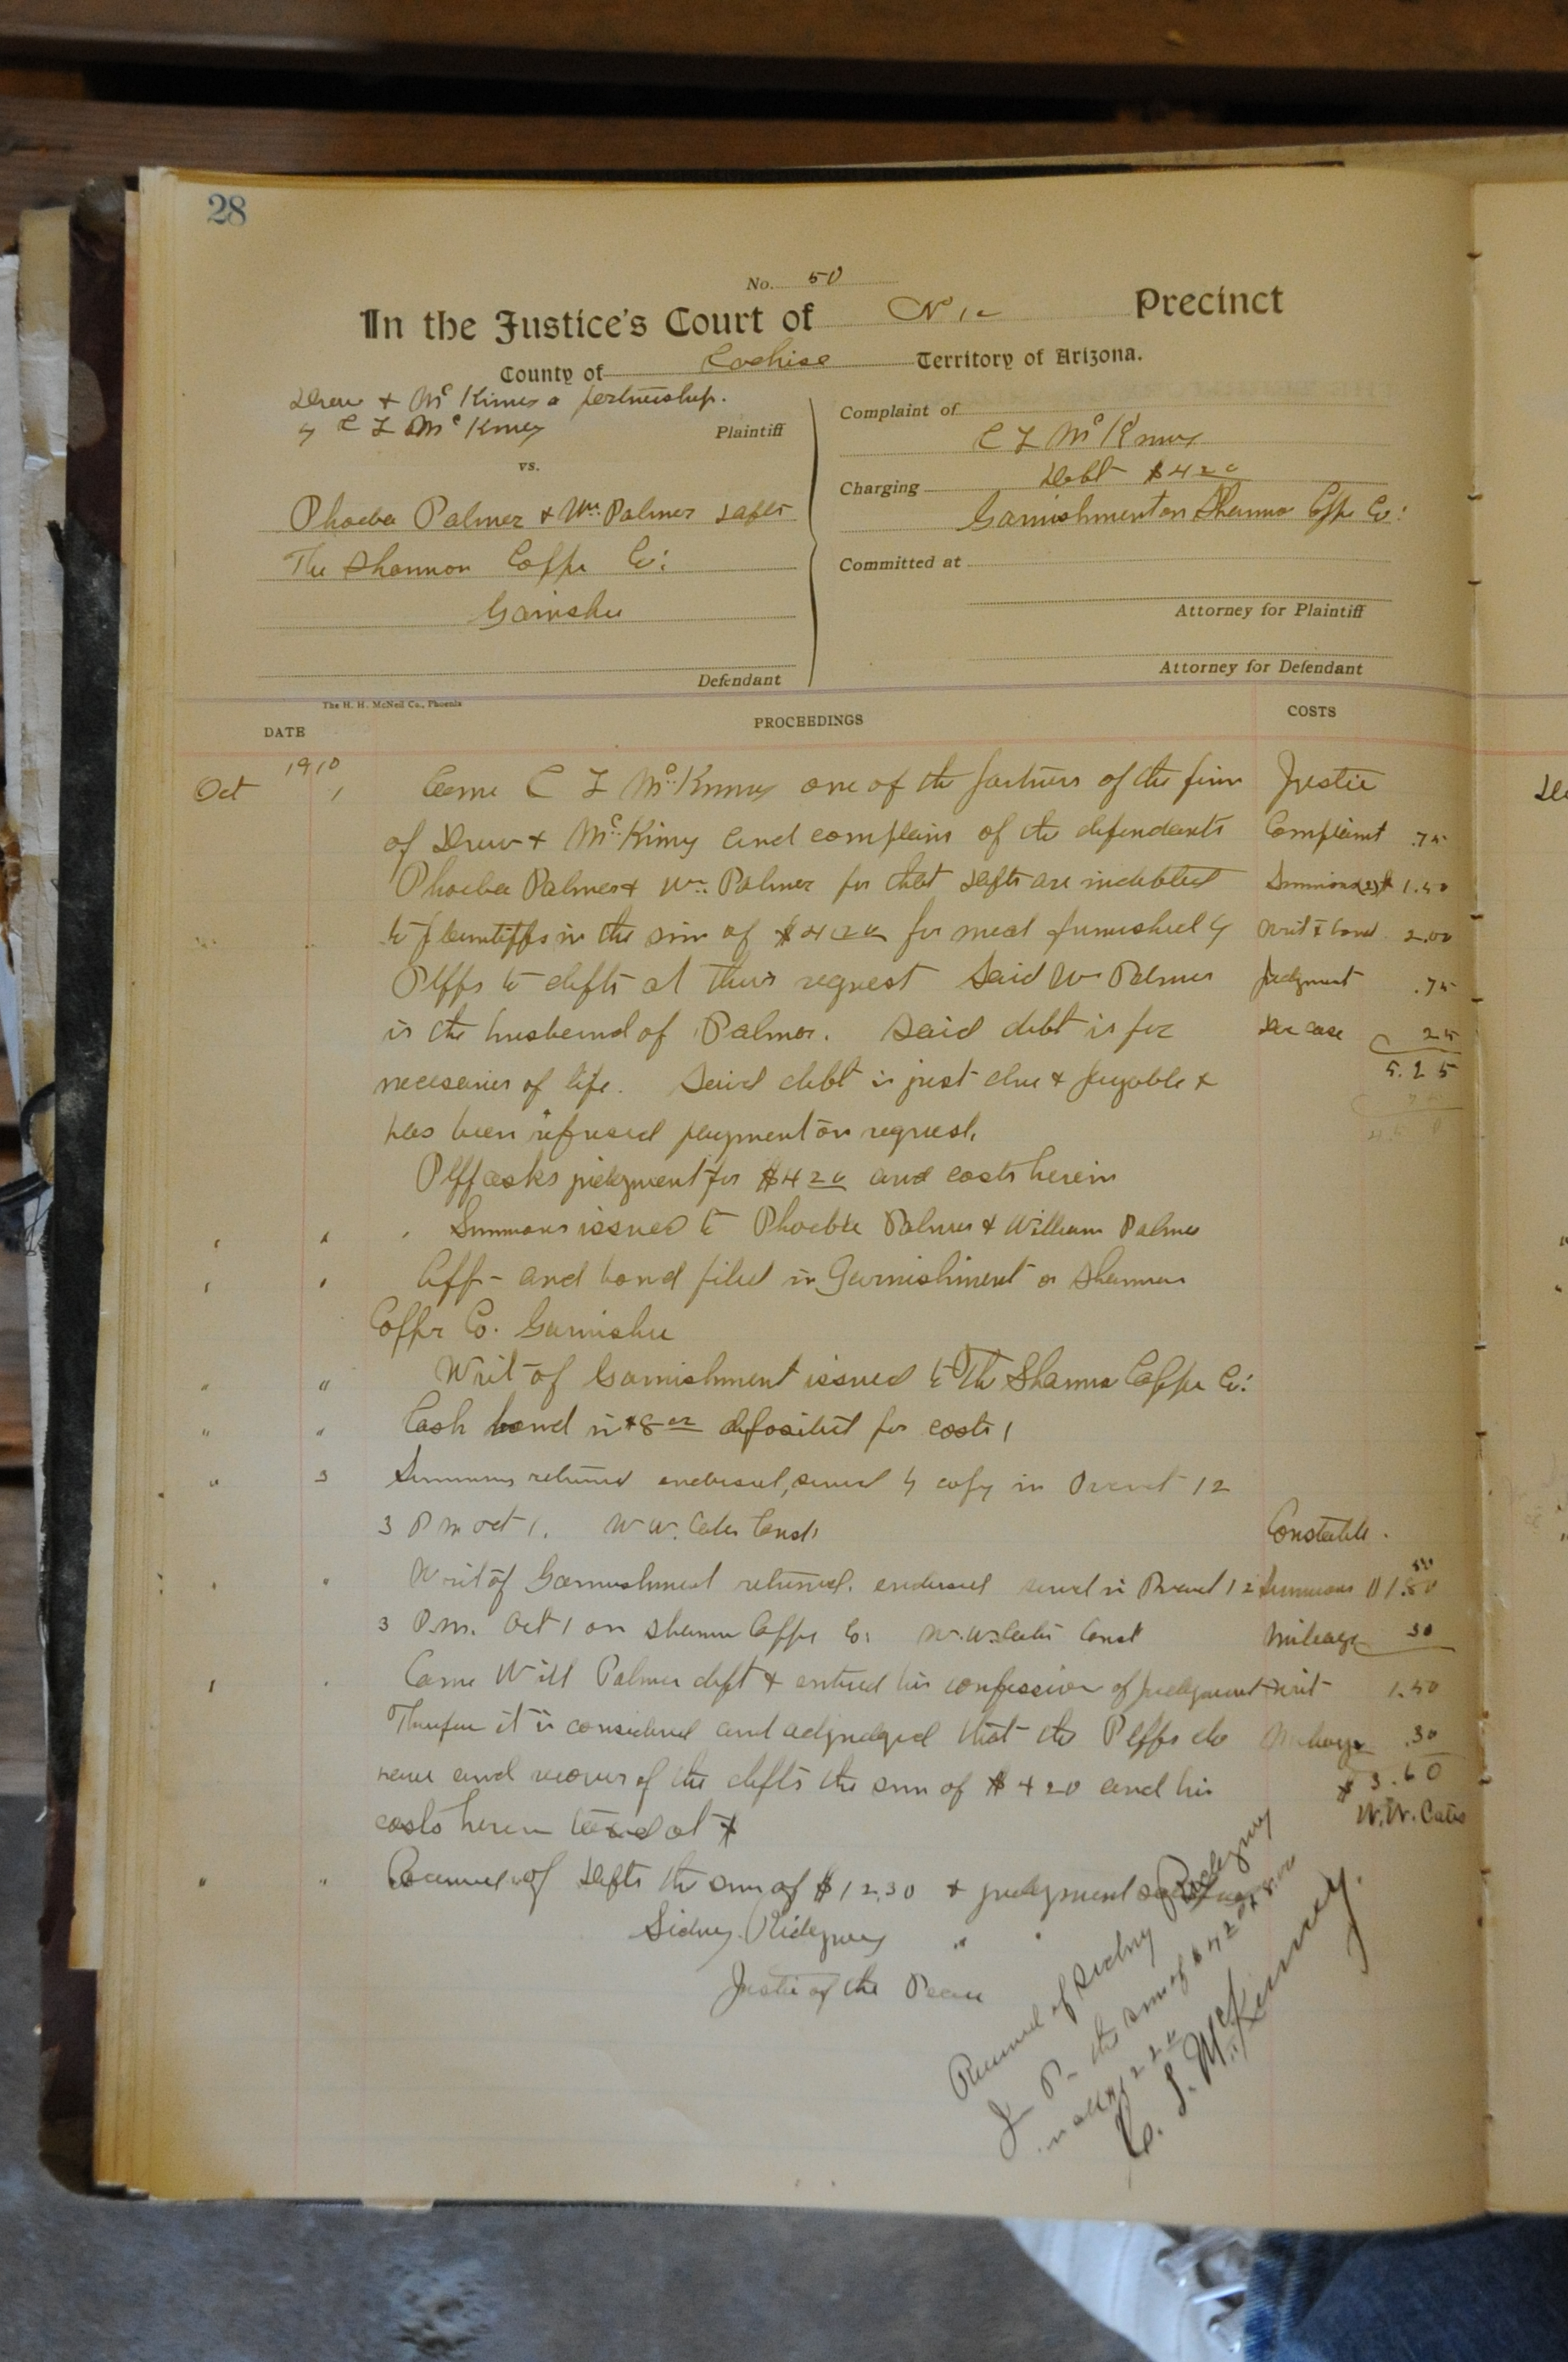 28
No. 50
In the Justice's Court of No 12 Precinct
County of Cochise Territory of Arizona.
Drew & McKinney a partnership.
by C L McKinney
Plaintiff
vs.
Phoeba Palmer & Wm. Palmer Defts
The Shannon Copper Co:
Garnishee
Defendant
Complaint of
C L McKinney
Charging Debt $4 20
Garnishment on Shannon Copper Co:
Committed at
Attorney for Plaintiff
Attorney for Defendant
The H. H. McNeil Co., Phoenix
DATE PROCEEDINGS COSTS
1910
Oct 1 Came C L McKinney one of the partners of the firm Justice
of Drew & McKinney and complains of the defendants Complaint .75
Phoeba Palmer & Wm. Palmer for that Defts are indebted Summons (2) 1.50
to plaintiffs in the sum of $4 20 for meat furnished by Writ & bond 2.00
Plffs to defts at their request Said Wm Palmer Judgment .75
is the husband of Palmer. Said debt is for case 25
necessaries of life. Said debt is just due & payable & 5.25
has been refused payment on request.
Plff asks judgment for $4 20 and costs herein
" " Summons issued to Phoebe Palmer & William Palmer
" " Aff - and bond filed in Garnishment on Shannon
Copper Co. Garnishee
" " Writ of Garnishment issued to The Shannon Copper Co:
" " Cash bond in $8 00 deposited for costs
" 3 Summons returned endorsed, served by copy in Precinct 12
3 P m Oct 1. W W. Cates Const Constable.
" " Writ of Garnishment returned. endorsed served in Precinct 12 Summons 1.50
3 P.m. Oct 1 on Shannon Copper Co: W. W. Cates Const Mileage 30
" " Came Will Palmer deft & entered his confession of judgment Writ 1.50
Therefore it is considered and adjudged that the Plffs do Mileage .30
have and recover of the defts the sum of $4 20 and his $3.60
costs herein taxed at $ W. W. Cates
" " Received of Defts the sum of $12.30 & judgment
Sidney Ridgway " "
Justice of the Peace
Received of Sidney Ridgway
J P. the sum of $4 20 & 8.00
in all $12 20
C. L. McKinney.